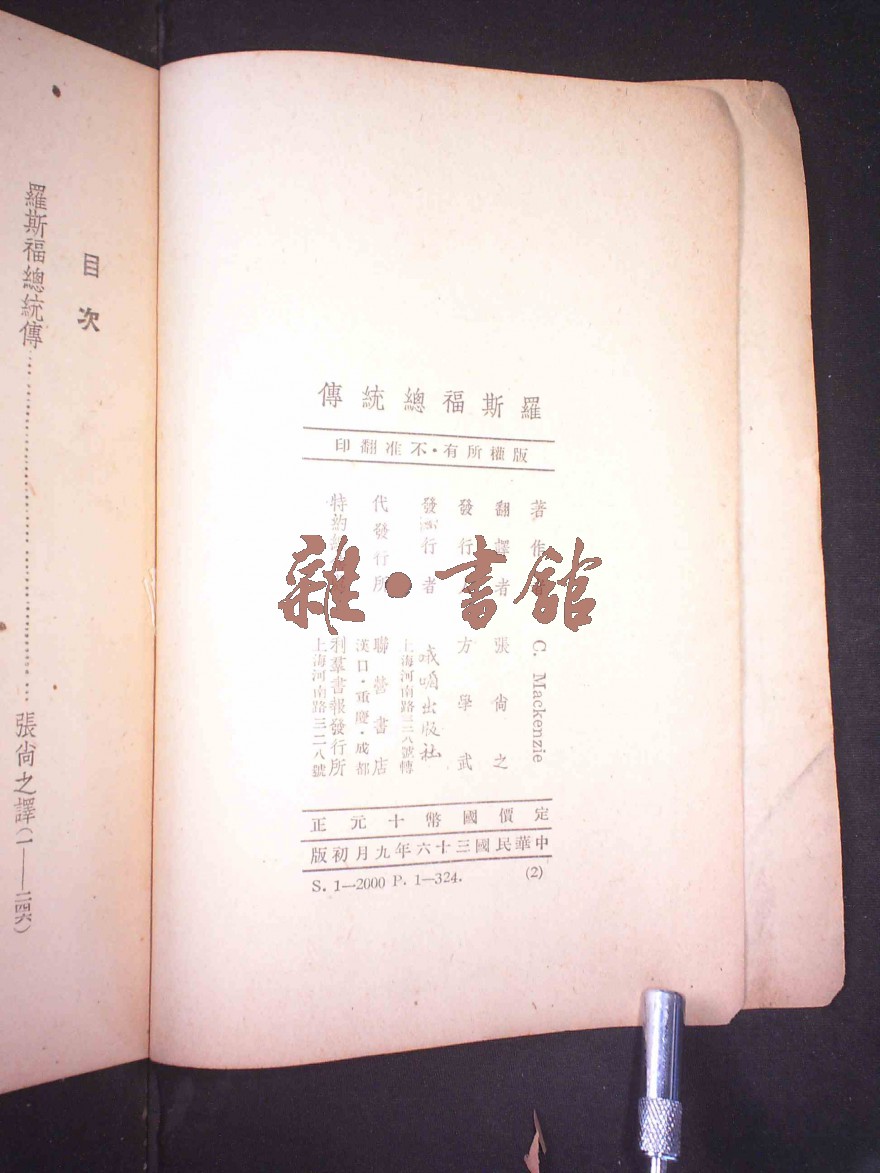 羅斯福總統傳
版權所有·不准翻印
著作 C. Mackenzie
翻譯者 張尙之
發行 方學武
發行者 峨嵋出版社
上海河南路三二八號轉
代發行所 聯營書店
漢口·重慶·成都
特約 利羣書報發行所
上海河南路三二八號
定價國幣十元正
中華民國三十六年九月初版
S. 1—2000 P. 1—324. (2)
目次
羅斯福總統傳 張尙之譯(一——二四六)
雜·書館